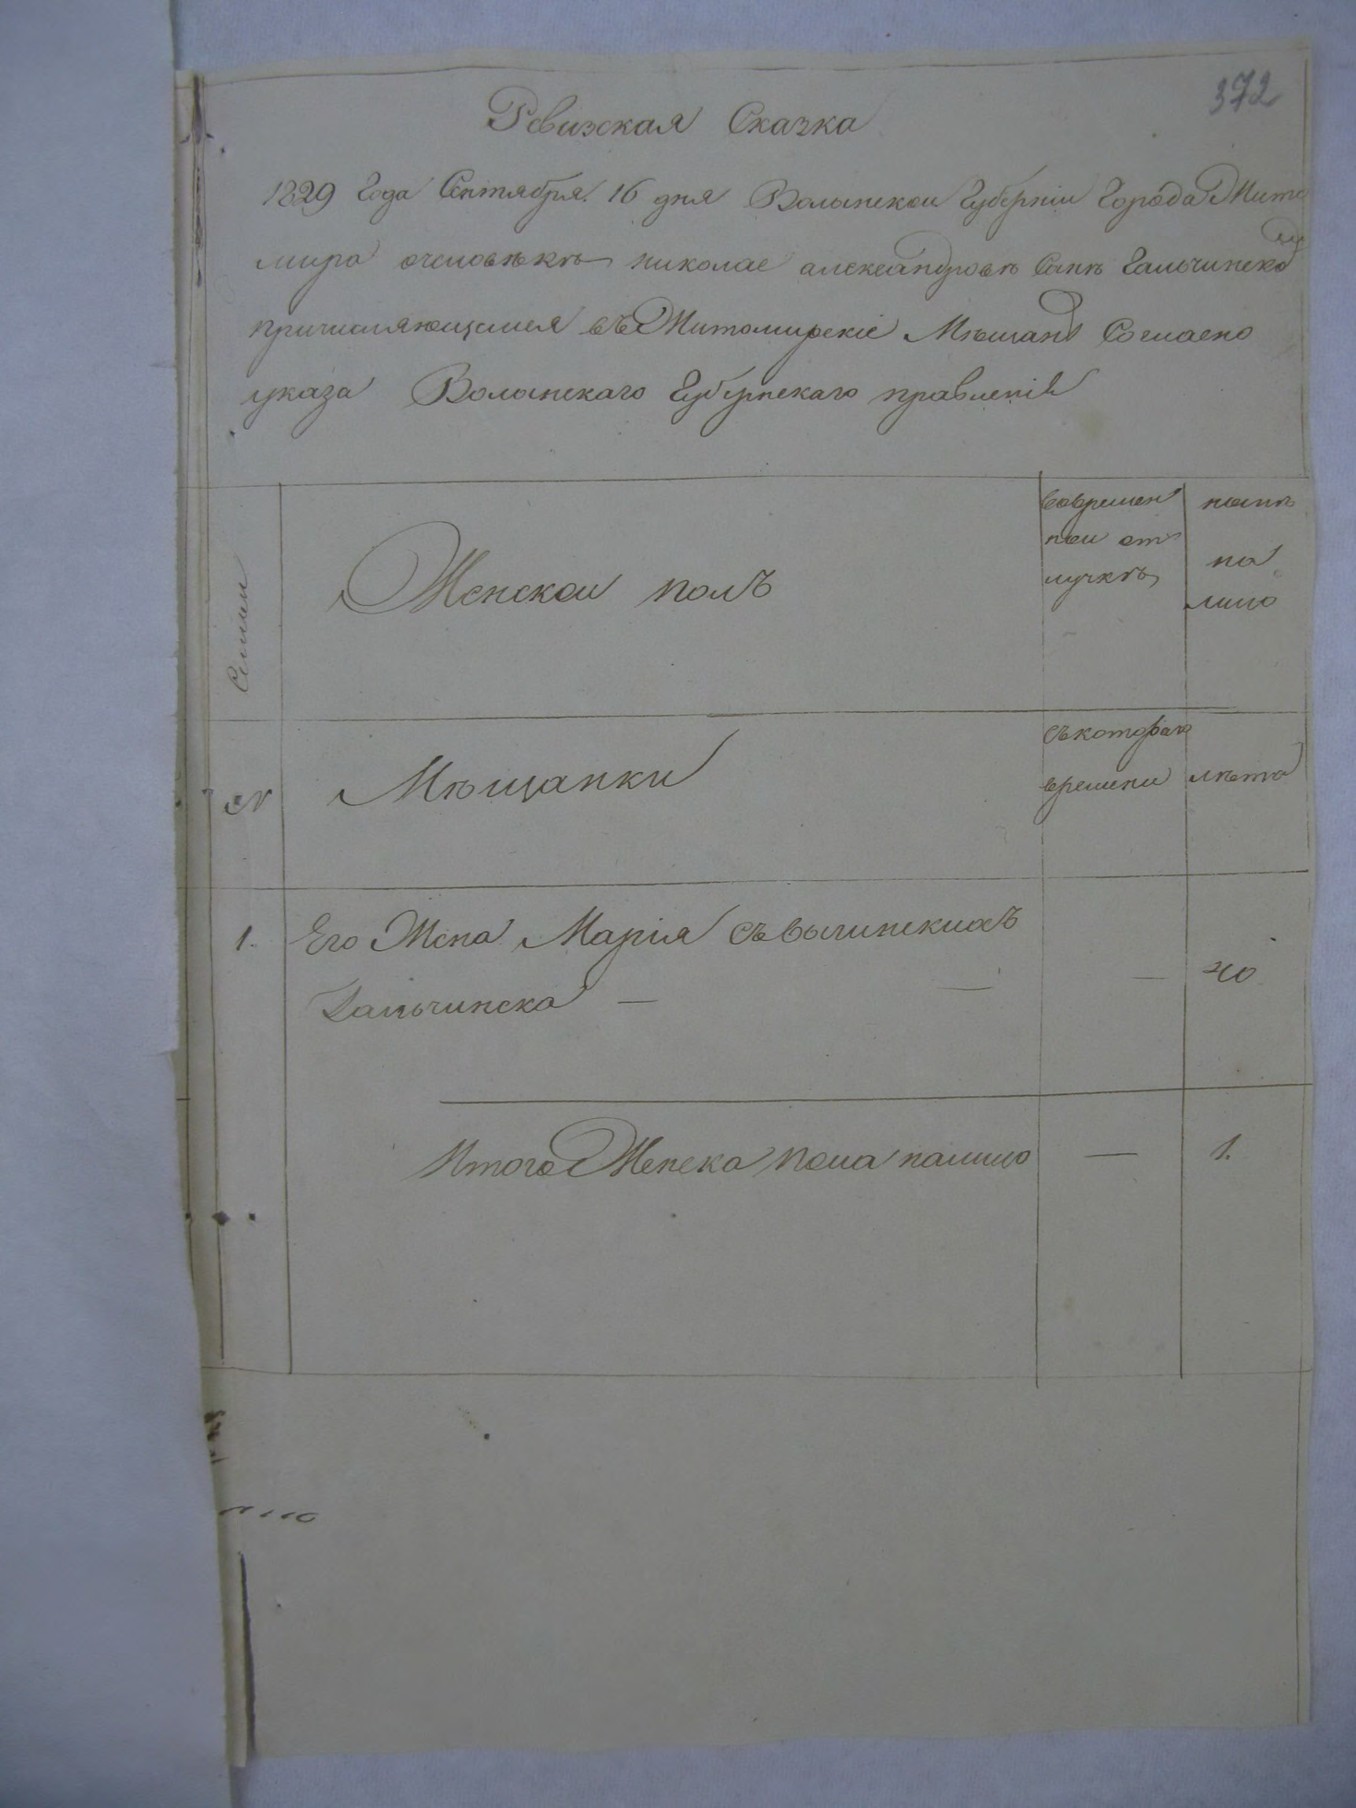 372
Ревизкая Сказка
1829 Года Сентября 16 дня Волынской Губерніи Города Жито
мира очеловѣкѣ николае александровѣ Сынѣ Гальчинско
причисляющемся въ Житомирскіе Мѣщане Согласно
указа Волынскаго Губернскаго правленія
Семьи
Женскои полъ
вовремен
нои от
лучкѣ
нынѣ
на
лицо
№
Мѣщанки
съкотораго
времени
лѣта
1.
Его Жена Марія
Гальчинска —
—
—
40
Итого Женска пола налицо
—
1.